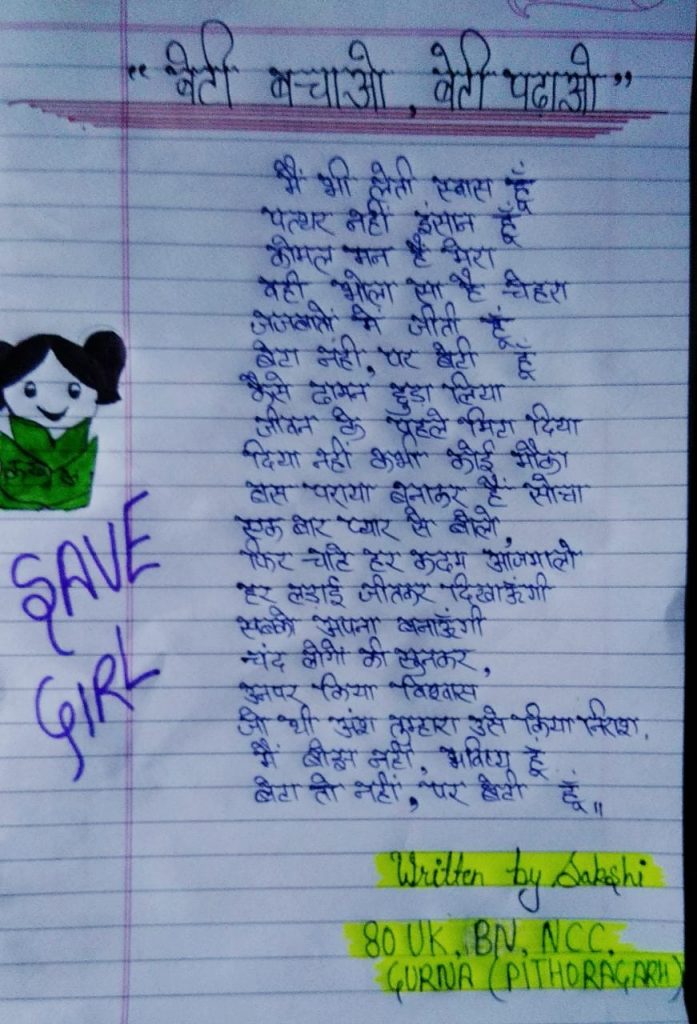 “बेटी बचाओ, बेटी पढाओ”
मैं भी लेती श्वास हूँ
पत्थर नहीं इंसान हूँ
कोमल मन है मेरा
वही भोला सा है चेहरा
जजबातों में जीती हूँ
बेटा नहीं, पर बेटी हूँ
कैसे दामन छुड़ा लिया
जीवन के पहले मिटा दिया
दिया नहीं कभी कोई मौका
बस पराया बनाकर है सोचा
एक बार प्यार से बोलो,
फिर चाहे हर कदम आजमालो
हर लड़ाई जीतकर दिखाऊंगी
सबको अपना बनाऊँगी
चंद लोगो की सुनकर,
उनपर किया विश्वास
जो थी अंश तुम्हारा उसे किया निराश.
मैं बोझ नहीं, भविष्य हूँ
बेटा तो नहीं, पर बेटी हूँ॥
SAVE
GIRL
Written by Sakshi
80 UK. BN. NCC.
GURNA (PITHORAGARH)